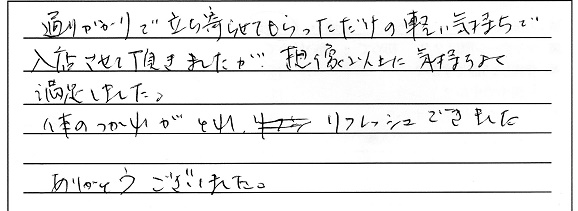 通りがかりで立ち寄らせてもらっただけの軽い気持ちで
入店させて頂きましたが想像以上に気持ちよく
満足しました。
体のつかれがとれ、リフレッシュできました
ありがとうございました。